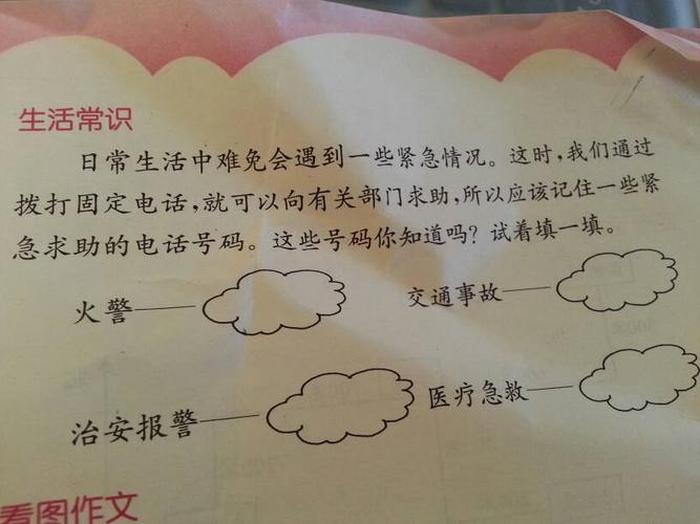 生活常识
日常生活中难免会遇到一些紧急情况。这时,我们通过
拨打固定电话,就可以向有关部门求助,所以应该记住一些紧
急求助的电话号码。这些号码你知道吗?试着填一填。
火警—— 交通事故——
治安报警—— 医疗急救——
看图作文